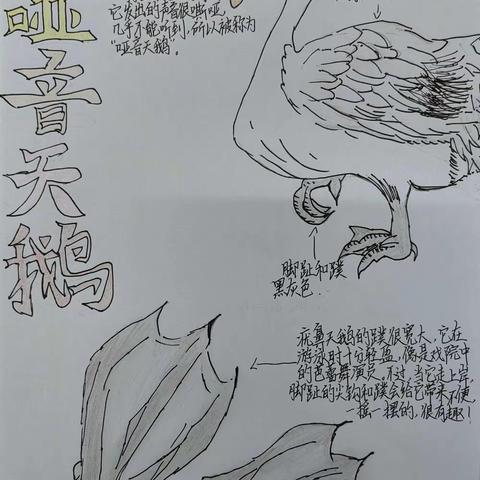 哑音天鹅
它发出的声音很嘶哑,
几乎不能听到,所以被称为
“哑音天鹅”。
脚趾和蹼
黑灰色.
疣鼻天鹅的蹼很宽大,它在
游泳时十分轻盈,像是戏院中
的芭蕾舞演员。不过,当它走上岸,
脚趾的尖钩和蹼会给它带来不便,
一摇一摆的,很有趣!